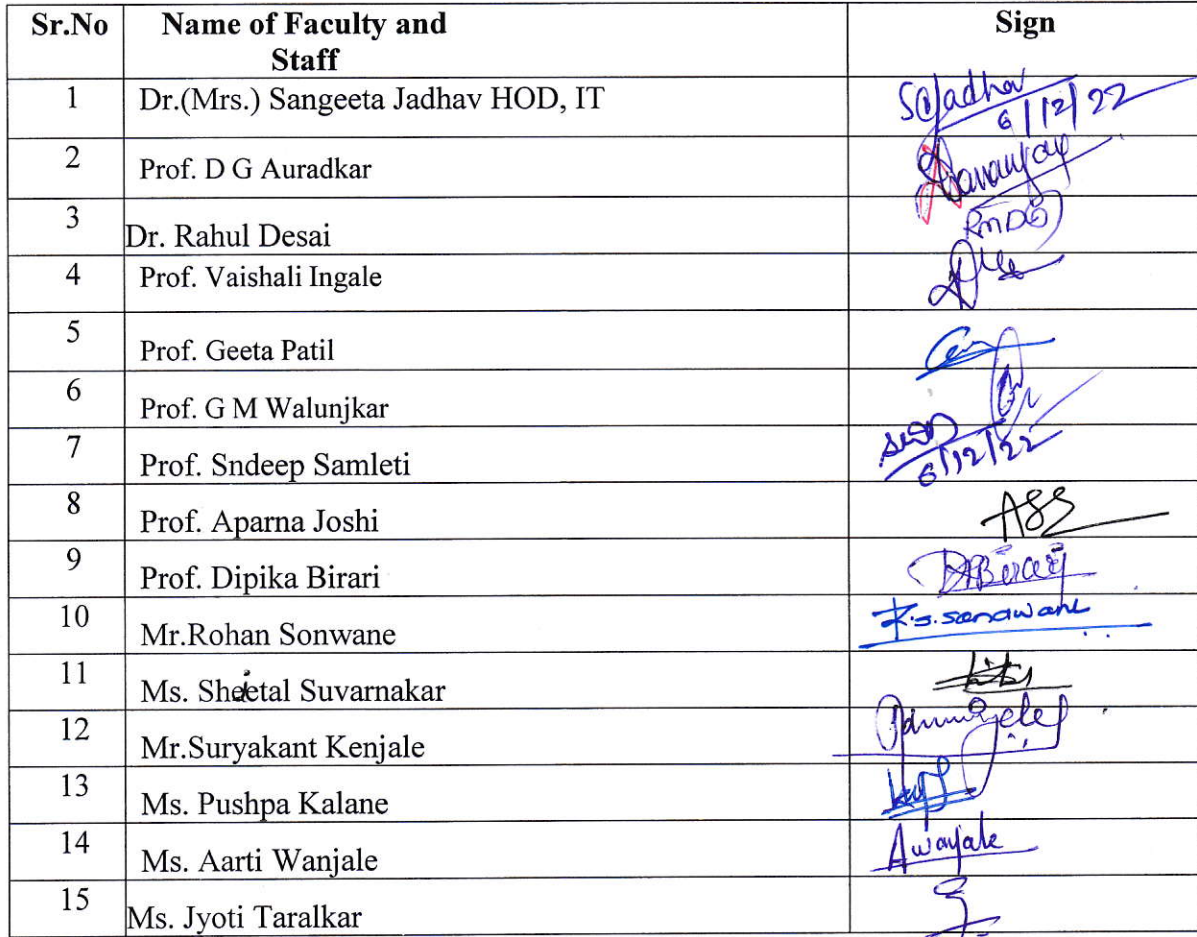 Sr.No Name of Faculty and Sign
Staff
1 Dr.(Mrs.) Sangeeta Jadhav HOD, IT SJadhav
6/12/22
2 Prof. D G Auradkar
3 Dr. Rahul Desai RMD
4 Prof. Vaishali Ingale
5 Prof. Geeta Patil
6 Prof. G M Walunjkar
7 Prof. Sndeep Samleti
6/12/22
8 Prof. Aparna Joshi
9 Prof. Dipika Birari DABirari
10 Mr.Rohan Sonwane R.S.Sonawane
11 Ms. Sheetal Suvarnakar
12 Mr.Suryakant Kenjale
13 Ms. Pushpa Kalane
14 Ms. Aarti Wanjale Awanjale
15 Ms. Jyoti Taralkar